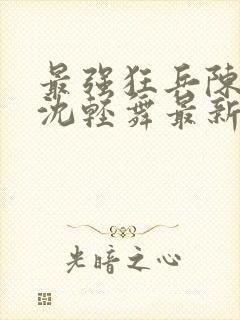 最强狂兵陈
沈轻舞最新
光暗之心